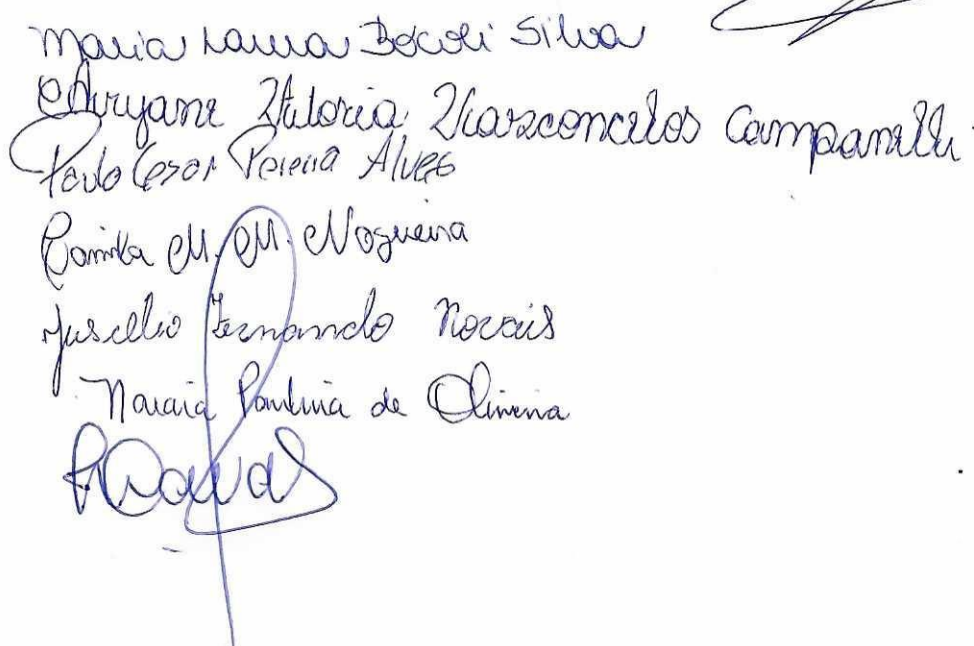 Maria Laura Bocoli Silva
Aryane Vitoria Vasconcelos Campanelli
Paulo Cesar Pereira Alves
Camila M. M. Nogueira
Juscelio Fernando Novais
Naiara Paulina de Oliveira